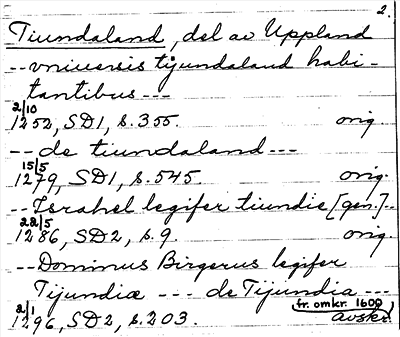 2.
Tiundaland, del av Uppland
-- vniuersis tijundaland habi-
tantibus ---
2/10
1252, SD1, s. 355. orig.
-- de tiundaland ---
15/5
1279, SD1, s. 545. orig.
-- Israhel legifer tiundie [gen.] --
22/5
1286, SD2, s. 9. orig.
-- Dominus Birgerus legifer
Tijundiæ --- de Tijundia ---
2/1 fr. omkr. 1600
1296, SD2, s. 203. avskr.